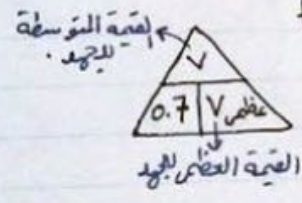 القيمة المتوسطة
للجهد .
V
0.7 V عظمى
القيمة العظمى للجهد